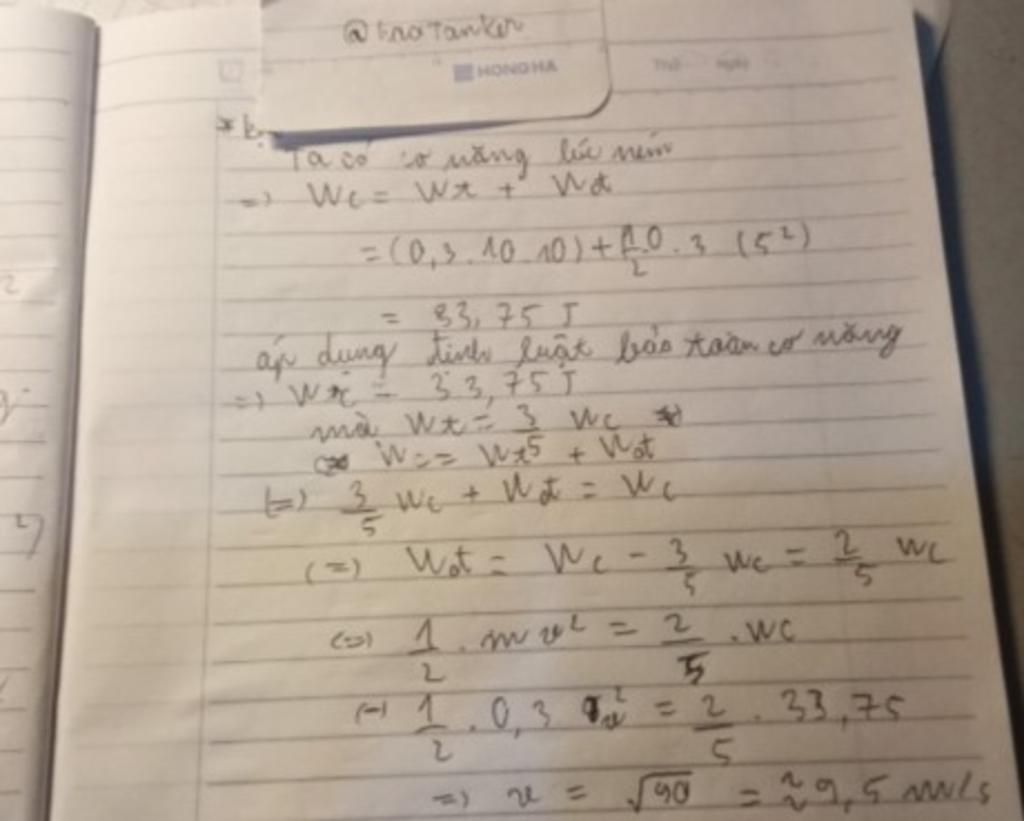 @tnaTanker
HONG HA
* b.
Ta có cơ năng lúc ném
=> Wc = Wt + Wđ
= (0,3.10.10) + 1/2.0.3 (5²)
= 33,75 J
áp dụng định luật bảo toàn cơ năng
=> Wc = 33,75 J
mà Wt = 3/5 Wc
Wc = Wt + Wđ
(=) 3/5 Wc + Wđ = Wc
(=) Wđ = Wc - 3/5 Wc = 2/5 Wc
(=) 1/2 . mv² = 2/5 . Wc
(=) 1/2 . 0,3 v² = 2/5 . 33,75
=> v = √90 = ≈ 9,5 m/s